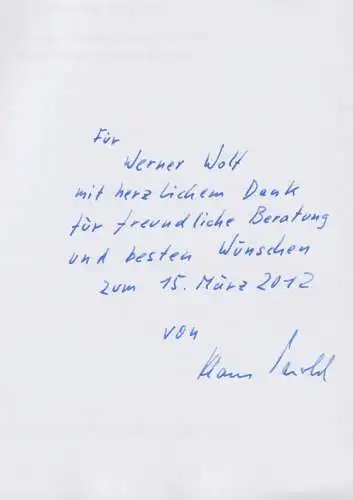 Für
Werner Wolf
mit herzlichem Dank
für freundliche Beratung
und besten Wünschen
zum 15. März 2012
von
Klaus